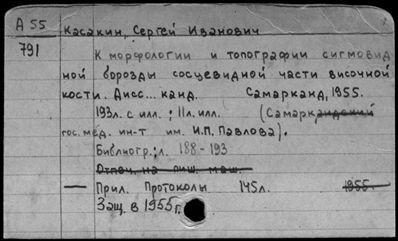 А 55
Касакин, Сергей Иванович
791
К морфологии и топографии сигмовид
ной борозды сосцевидной части височной
кости. Дисс... канд. Самарканд, 1955.
193л. с илл. ; 11л. илл. (Самаркандский
гос. мед. ин-т им. И.П. Павлова).
Библиогр.: л. 188-193
Отпеч. на пиш. маш.
— Прил. Протоколы 145л. 1955.
Защ. в 1955г.